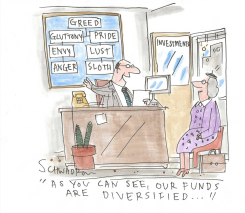 GREED
GLUTTONY PRIDE
ENVY LUST
ANGER SLOTH
INVESTMENTS
SCHWADRON
"AS YOU CAN SEE, OUR FUNDS
ARE DIVERSIFIED..."